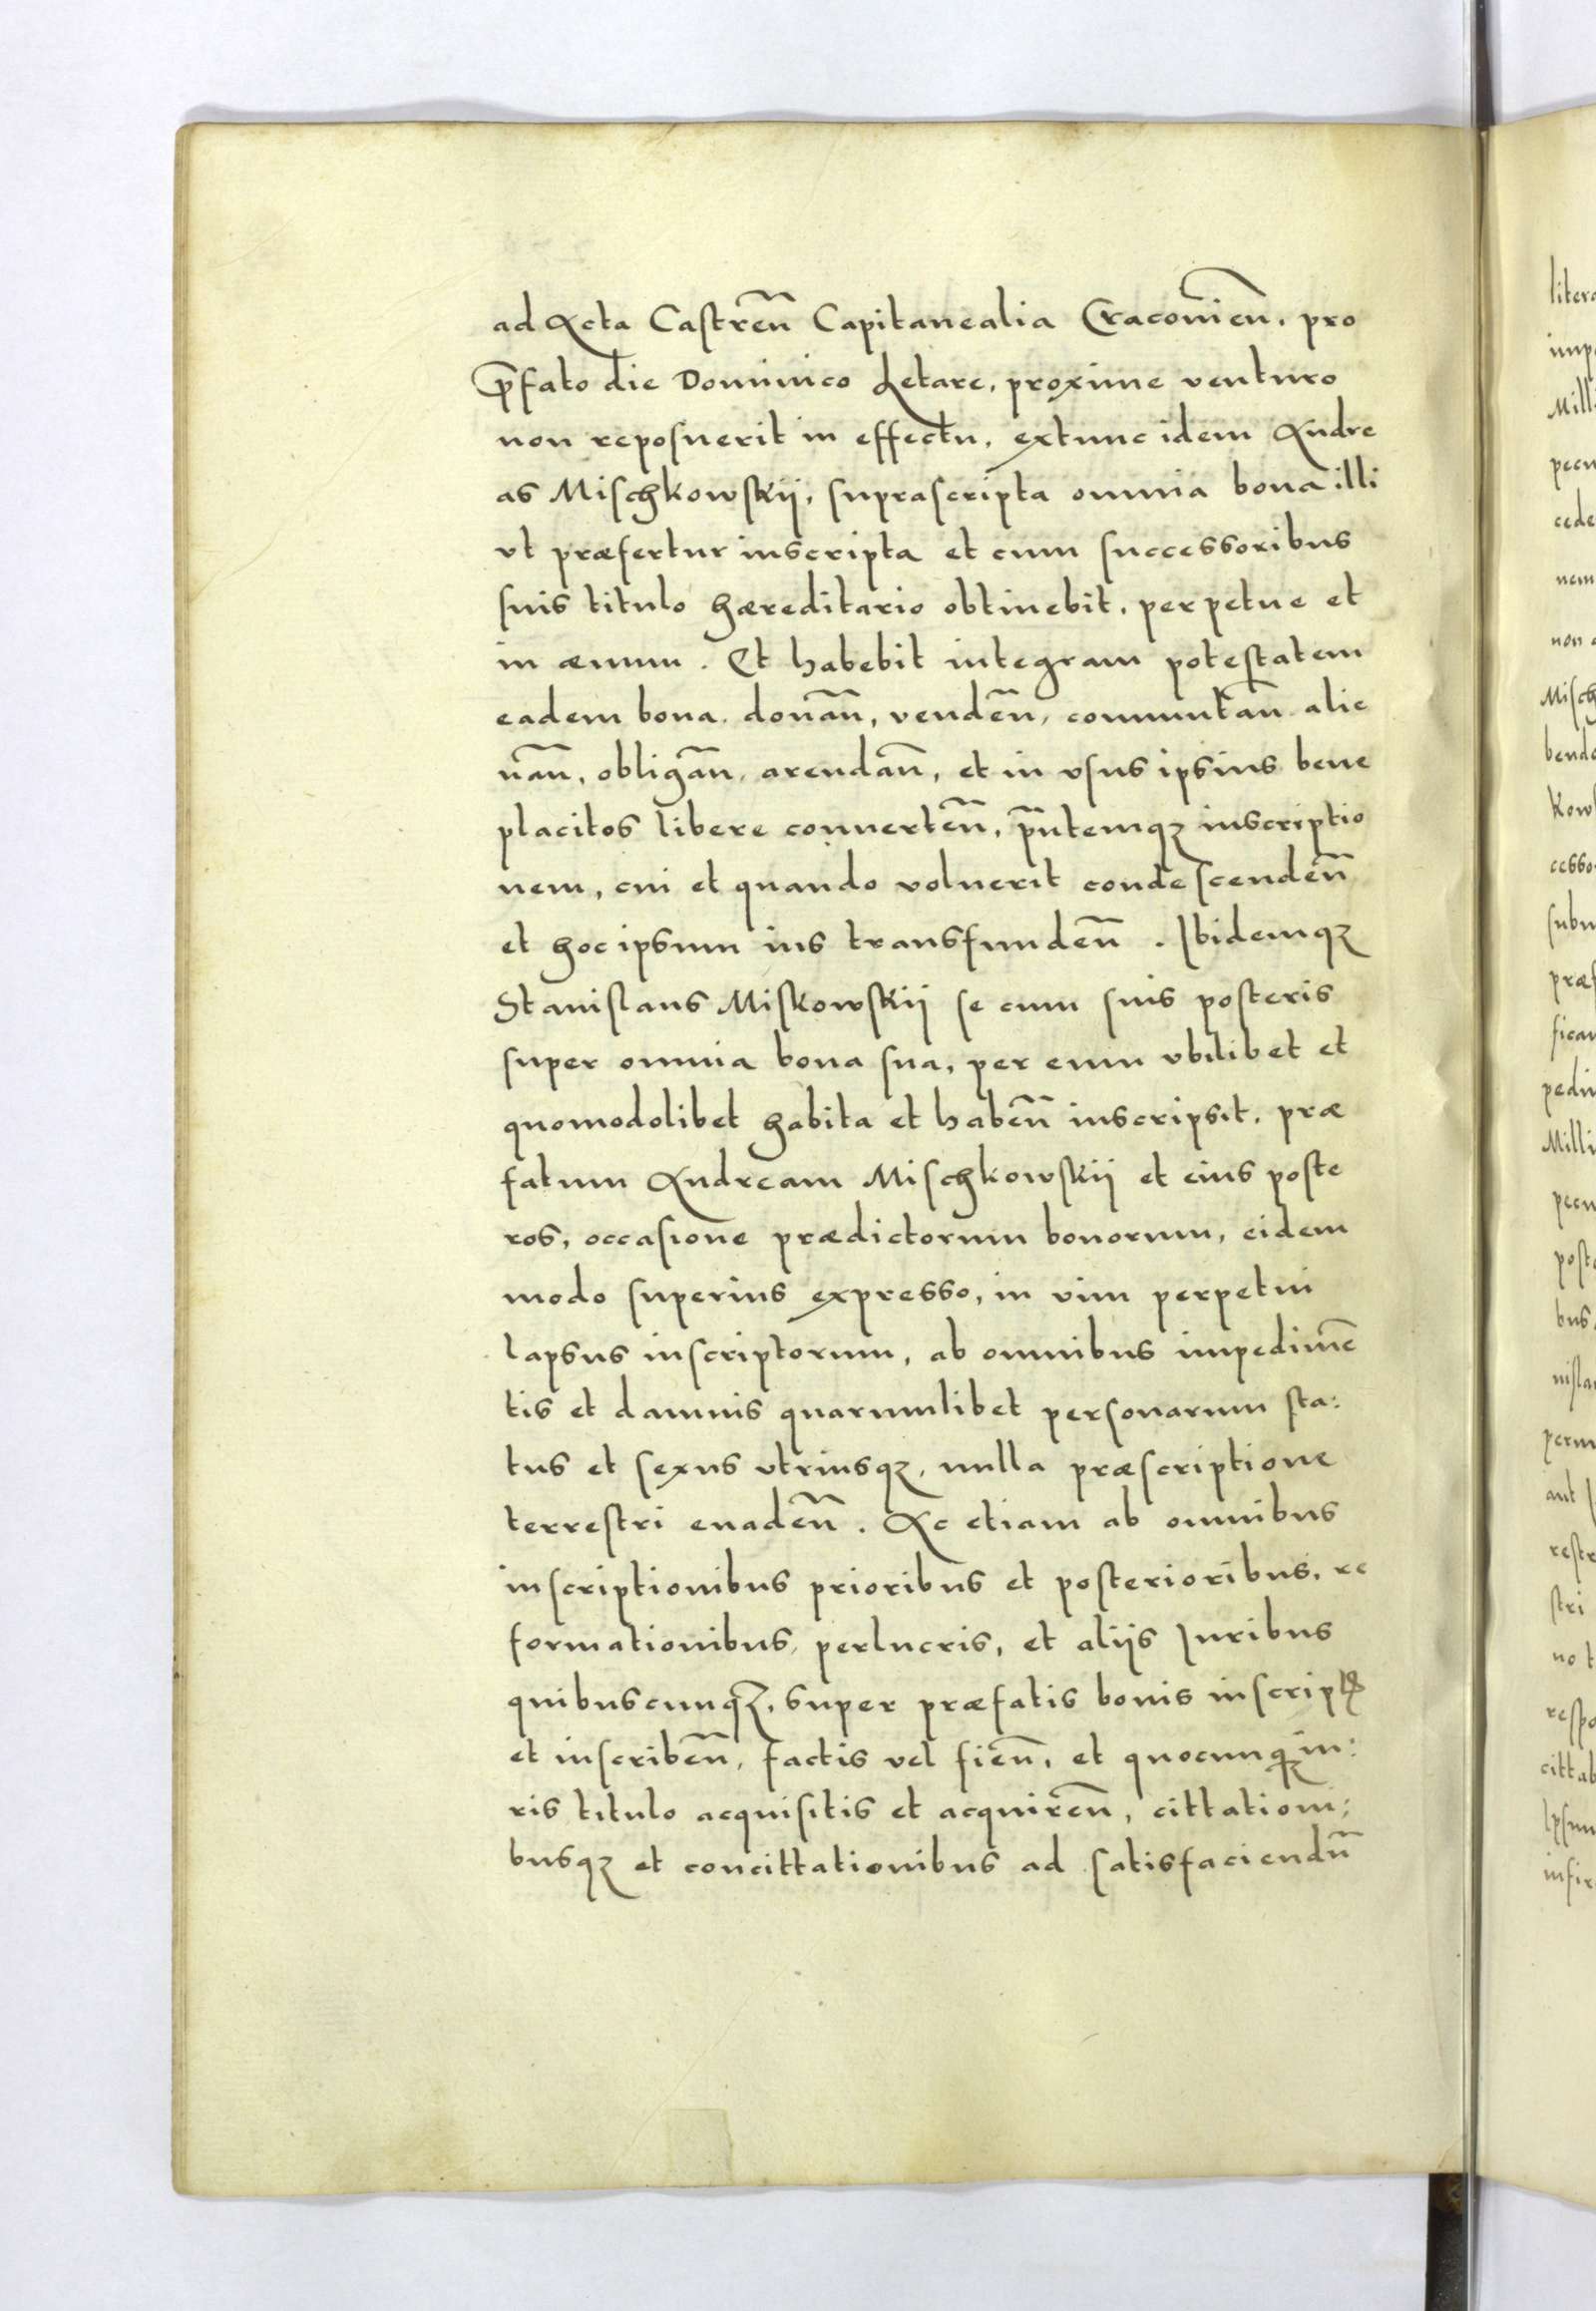 ad Acta Castreñ Capitanealia Cracouieñ. pro
p̃fato die Dominico Letare, proxime venturo
non reposuerit in effectu, extunc idem Andre
as Mischkowskij, suprascripta omnia bona illi
vt præfertur inscripta et cum successoribus
suis titulo hæreditario obtinebit, perpetue et
in æuum. Et habebit integram potestatem
eadem bona donañ, vendeñ, commutañ alie
nañ, obligañ, arendañ, et in vsus ipsius bene
placitos libere conuerteñ, p̃ntemqꝫ inscriptio
nem, cui et quando voluerit condescendeñ
et hoc ipsum ius transfundeñ. Ibidemqꝫ
Stanislaus Miskowskij se cum suis posteris
super omnia bona sua, per eum vbilibet et
quomodolibet habita et habeñ inscripsit, præ
fatum Andream Mischkowskij et eius poste
ros, occasione prædictorum bonorum, eidem
modo superius expresso, in vim perpetui
lapsus inscriptorum, ab omnibus impedimē
tis et damnis quarumlibet personarum sta:
tus et sexus vtriusqꝫ, nulla præscriptione
terrestri euadeñ. Ac etiam ab omnibus
inscriptionibus prioribus et posterioribus, re
formationibus, perlucris, et alijs Iuribus
quibuscunqꝫ, super præfatis bonis inscriptꝭ
et inscribeñ, factis vel fieñ, et quocunqꝫ iu:
ris titulo acquisitis et acquireñ, cittationi:
busqꝫ et concittationibus ad satisfaciendū